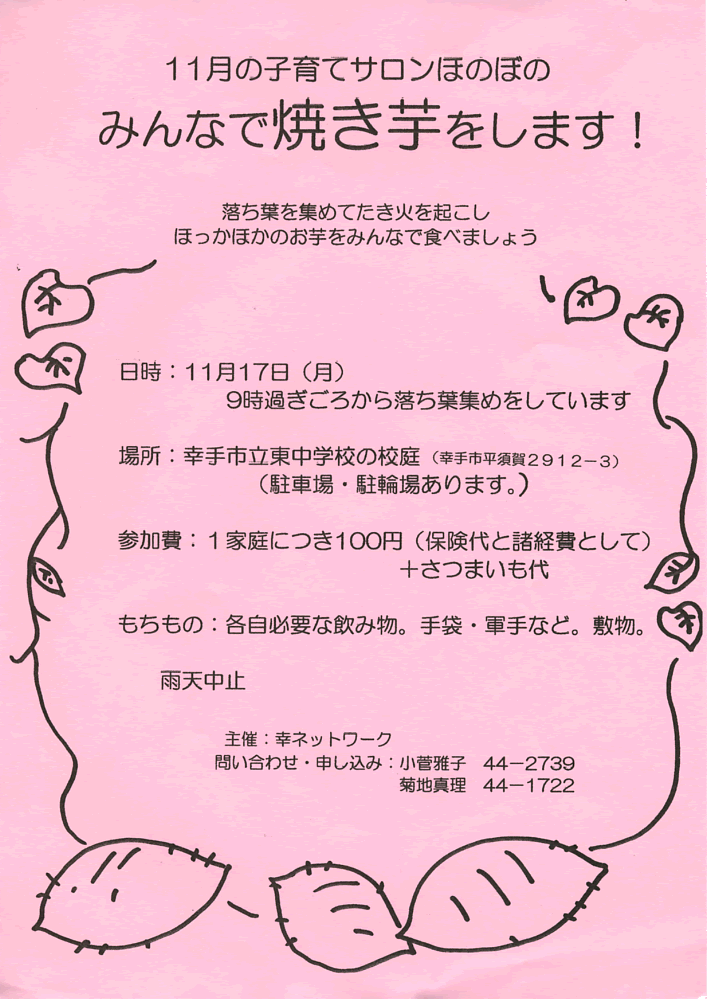 11月の子育てサロンほのぼの
みんなで焼き芋をします！
落ち葉を集めてたき火を起こし
ほっかほかのお芋をみんなで食べましょう
日時：11月17日（月）
9時過ぎごろから落ち葉集めをしています
場所：幸手市立東中学校の校庭（幸手市平須賀2912－3）
（駐車場・駐輪場あります。）
参加費：1家庭につき100円（保険代と諸経費として）
＋さつまいも代
もちもの：各自必要な飲み物。手袋・軍手など。敷物。
雨天中止
主催：幸ネットワーク
問い合わせ・申し込み：小菅雅子　44－2739
菊地真理　44－1722